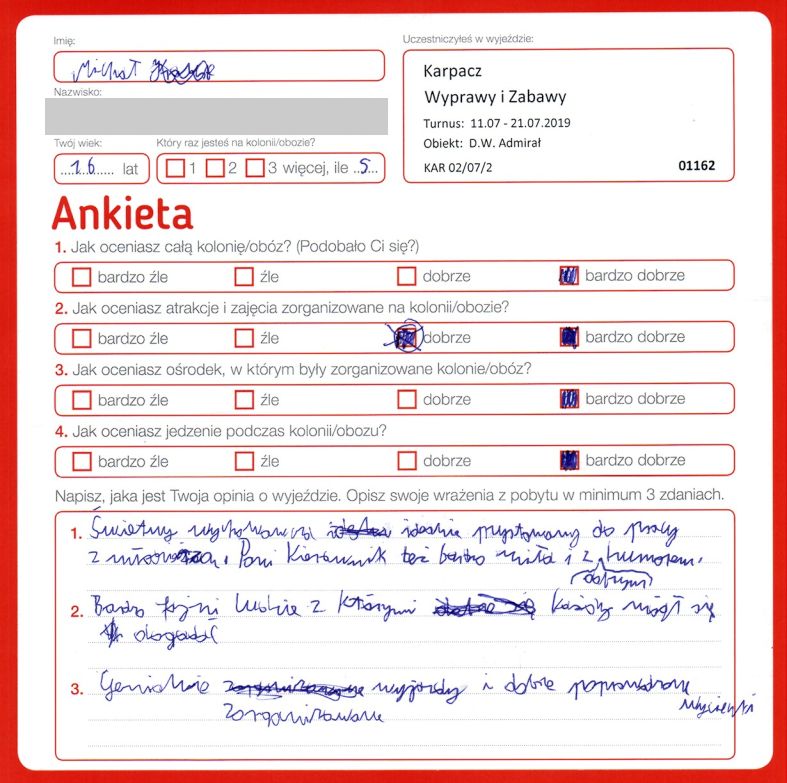 Imię:
Michał
Nazwisko:
Twój wiek:
16 lat
Który raz jesteś na kolonii/obozie?
1 2 3 więcej, ile 5
Uczestniczyłeś w wyjeździe:
Karpacz
Wyprawy i Zabawy
Turnus: 11.07 - 21.07.2019
Obiekt: D.W. Admirał
KAR 02/07/2 01162
Ankieta
1. Jak oceniasz całą kolonię/obóz? (Podobało Ci się?)
bardzo źle źle dobrze bardzo dobrze
2. Jak oceniasz atrakcje i zajęcia zorganizowane na kolonii/obozie?
bardzo źle źle dobrze bardzo dobrze
3. Jak oceniasz ośrodek, w którym były zorganizowane kolonie/obóz?
bardzo źle źle dobrze bardzo dobrze
4. Jak oceniasz jedzenie podczas kolonii/obozu?
bardzo źle źle dobrze bardzo dobrze
Napisz, jaka jest Twoja opinia o wyjeździe. Opisz swoje wrażenia z pobytu w minimum 3 zdaniach.
1. Świetny wychowawca idealnie przystosowany do pracy
z Pani Kierownik też bardzo miła i z humorem.
dobrym
2. Bardzo fajni ludzie z którymi każdy mógł się
dogadać
3. Genialnie wyjazdy i dobrze poprowadzone
zorganizowane wycieczki